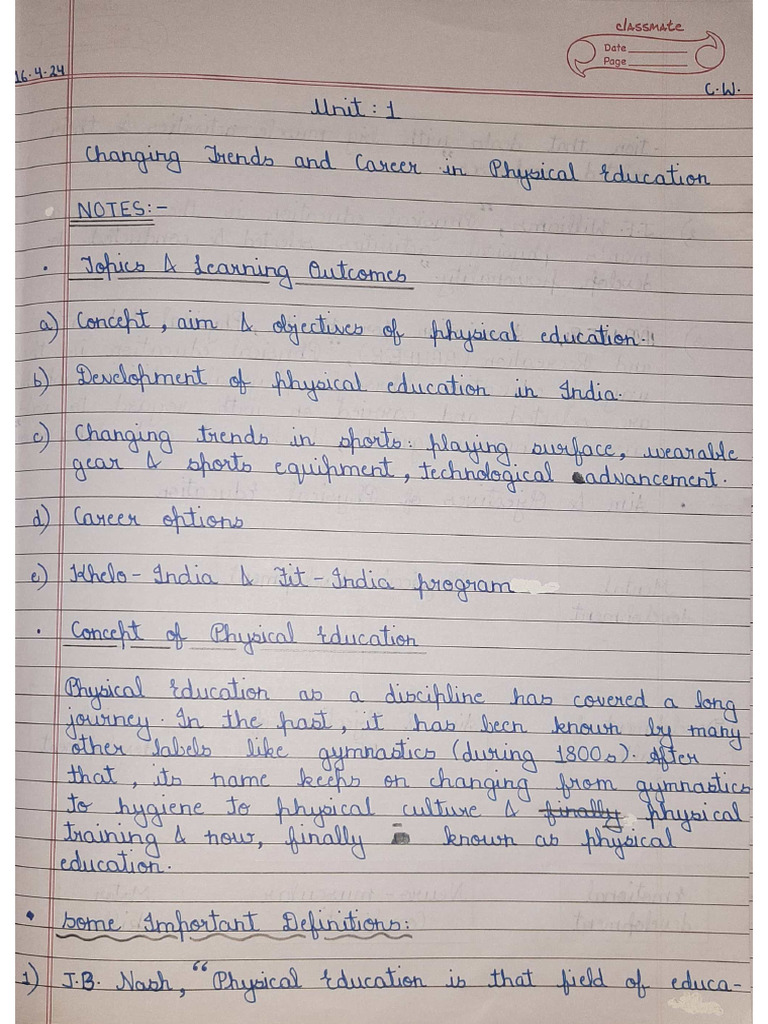 classmate
Date
Page
16.4.24
C.W.
Unit : 1
Changing Trends and Career in Physical Education
NOTES:-
• Topics & Learning Outcomes
a) Concept, aim & objectives of physical education.
b) Development of physical education in India.
c) Changing trends in sports: playing surface, wearable
gear & sports equipment, technological advancement.
d) Career options
e) Khelo-India & Fit-India program
• Concept of Physical Education
Physical Education as a discipline has covered a long
journey. In the past, it has been known by many
other labels like gymnastics (during 1800s). After
that, its name keeps on changing from gymnastics
to hygiene to physical culture & finally physical
training & now, finally known as physical
education.
• Some Important Definitions:
1) J.B. Nash, "Physical Education is that field of educa-